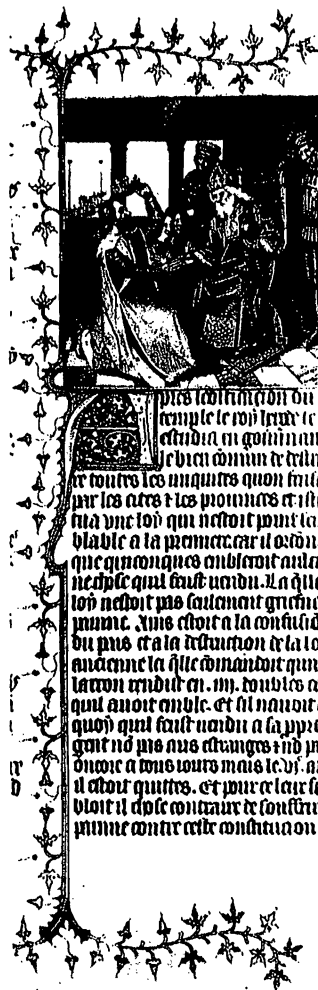 Apres ledification du
temple le roy herode se
estudia en gouuernant
le bien cōmun de
re toutes les iniquites quon
par les cites ⁊ les prouinces et
tua vne loy qui nestoit point
blable a la premiere. car il ordōn
que quinconques embleroit aulcune
ne chose quil feust vendu. La q̄lle
loy nestoit pas seulement
punir. Ains estoit a la confusiō
du pais et a la destruction de la lo
ancienne la q̄lle cōmandoit que
larron rendist en .iiij. doubles ce
quil auoit emble. Et sil nauoit
quoy quil feust vendu a sa ppre
gent nō pas aus estranges ⁊ nō
oncore a tous iours mais le .vj. a
il estoit quittes. Et pour ce leur
bloit il chose contraire de souffrir
punir contre ceste constitucion